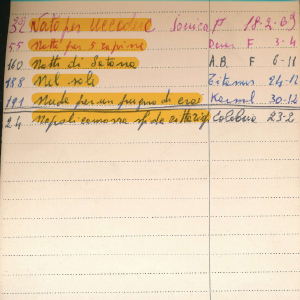 32 Nato per uccidere Ionica F 18-2-09
55 Notte per 5 rapine Dover F 3-4
160 Notti di Satana A.B. F 6-11
188 Nel sole Titanus 24-12
191 Nuda per un pugno di eroi Karmel 30-12
24 Napoli camorra sfida città Colobua 23-2